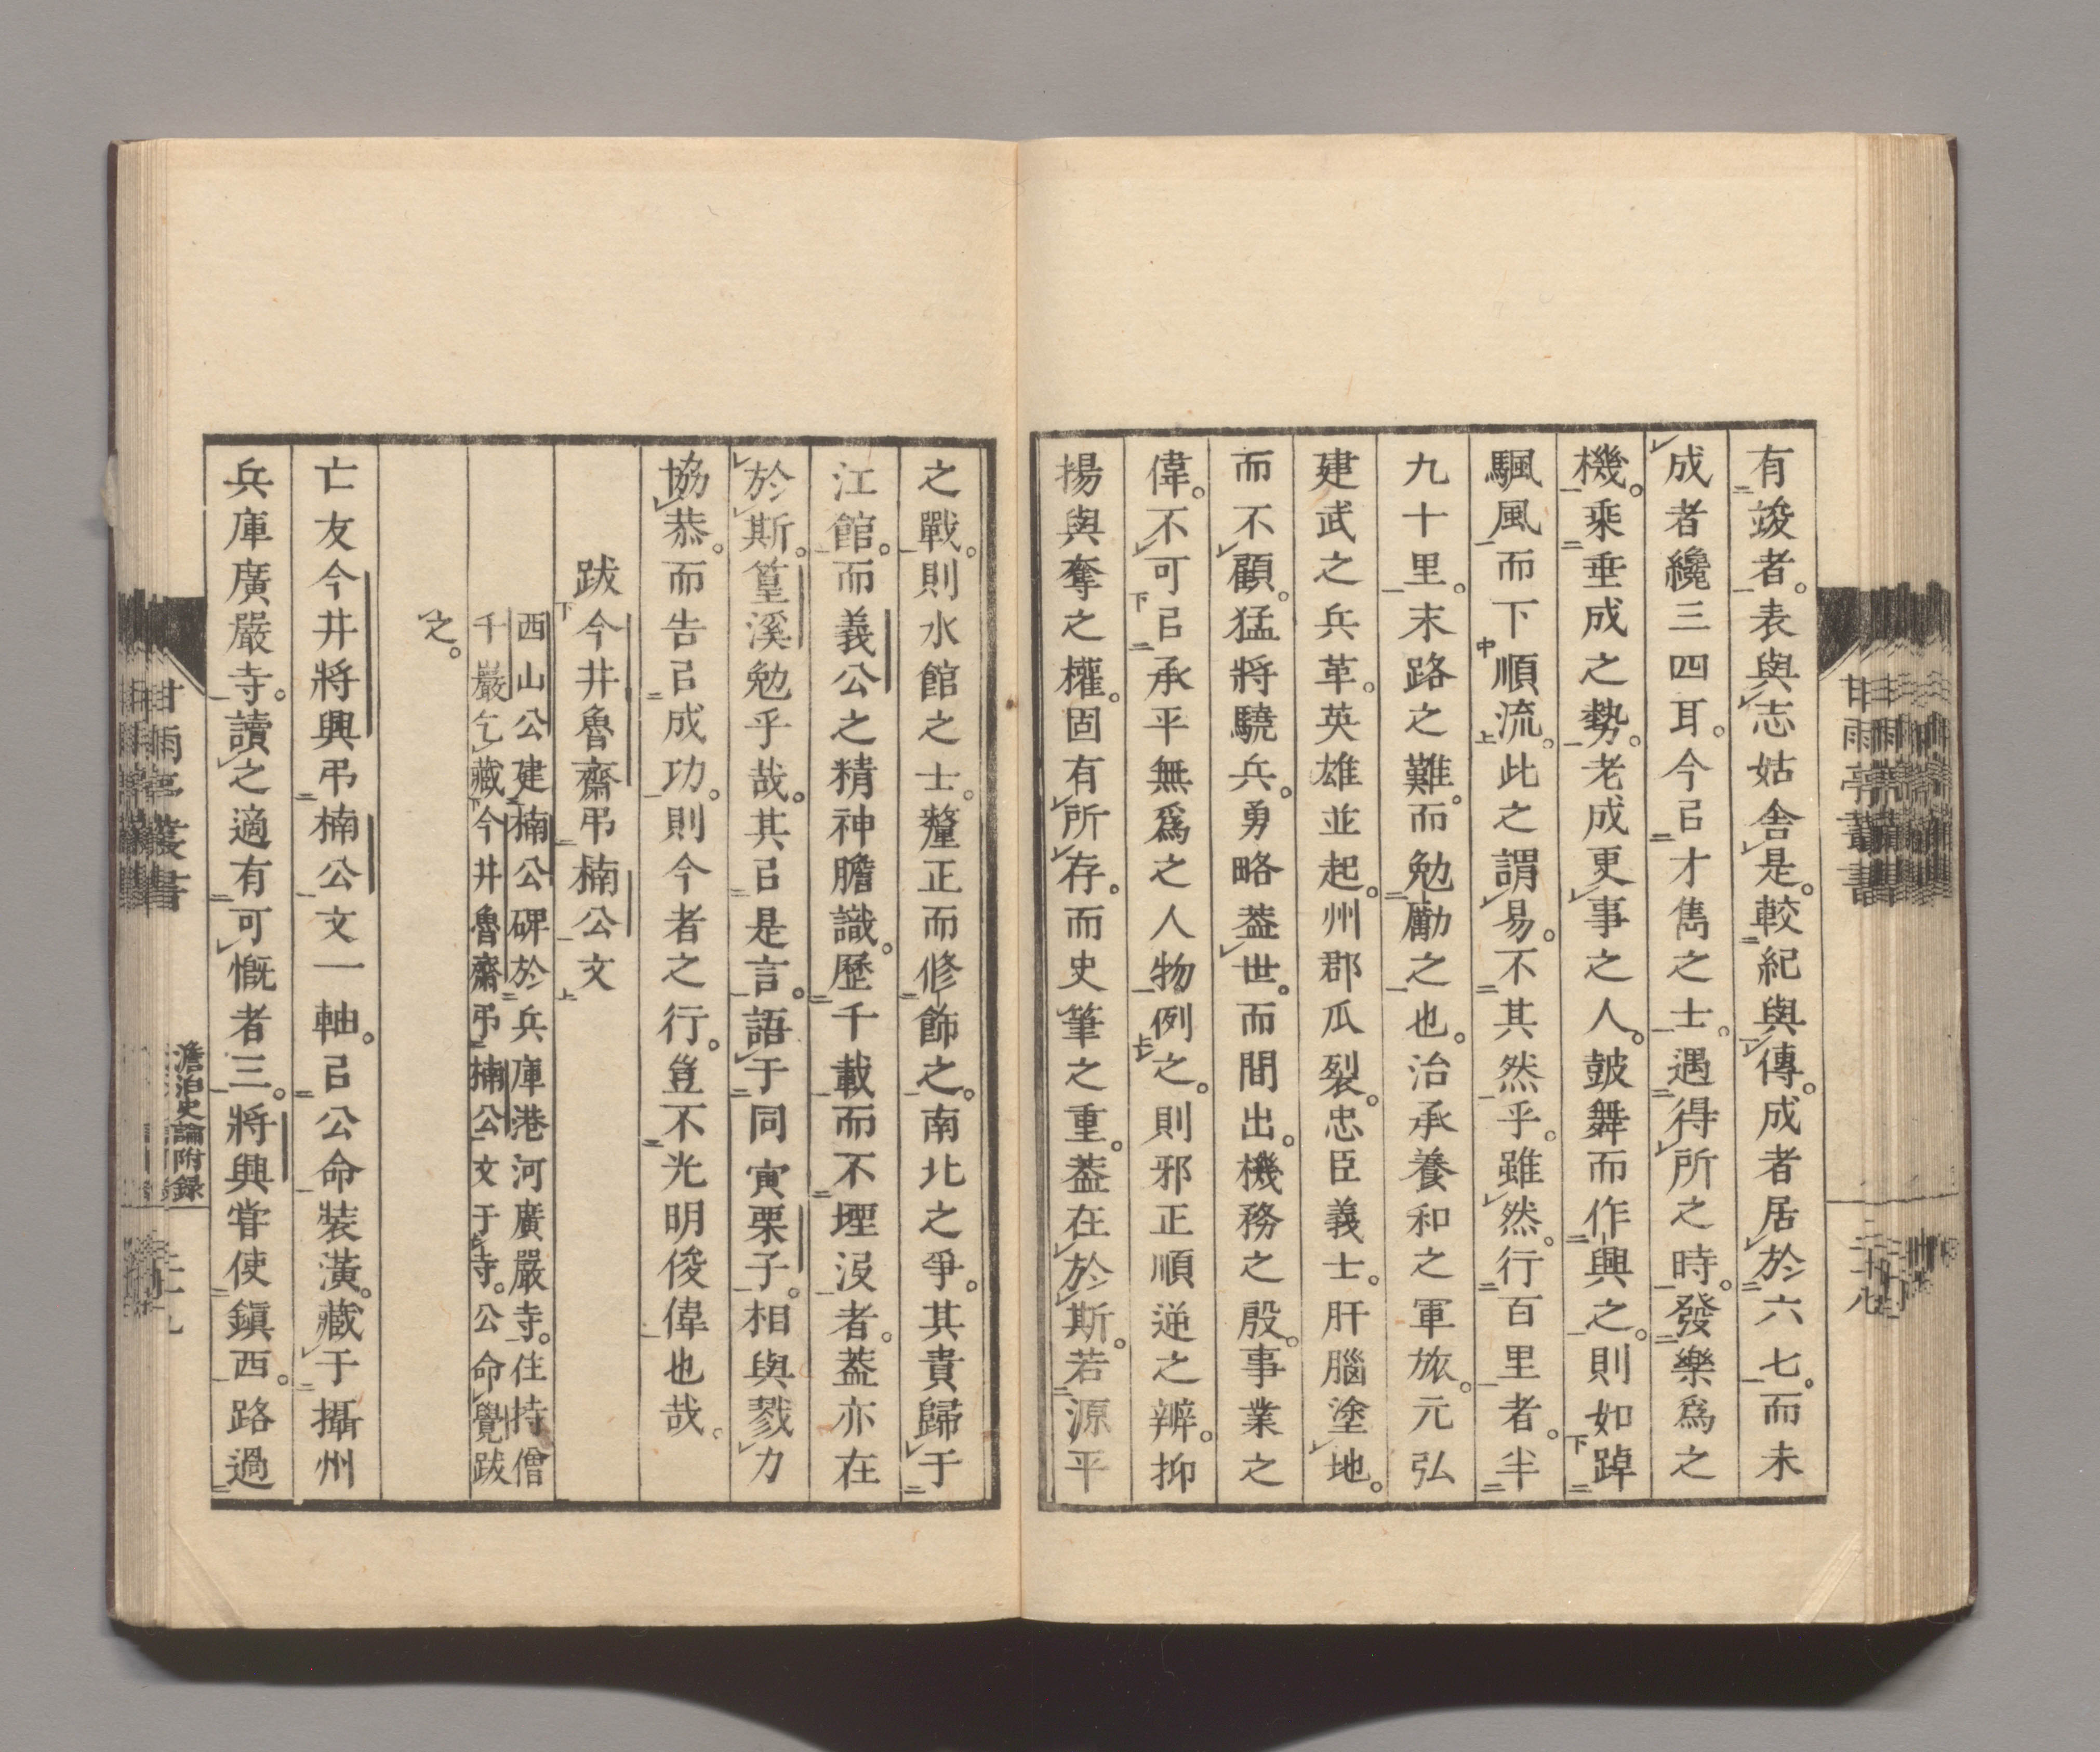 有竢者。表與志姑舍是。較紀與傳。成者居於六七。而未
成者纔三四耳。今㠯才雋之士。遇得所之時。發樂爲之
機。乘垂成之勢。老成更事之人。皷舞而作興之。則如踔
颿風而下順流。此之謂易。不其然乎。雖然。行百里者。半
九十里。末路之難。而勉勵之也。治承養和之軍旅。元弘
建武之兵革。英雄並起。州郡瓜裂。忠臣義士。肝腦塗地。
而不顧。猛將驍兵。勇略葢世。而間出。機務之殷。事業之
偉。不可㠯承平無爲之人物例之。則邪正順逆之辨。抑
揚與奪之權。固有所存。而史筆之重。葢在於斯。若源平
之戰。則水館之士。釐正而修飾之。南北之爭。其責歸于
江館。而義公之精神膽識。歷千載而不堙沒者。葢亦在
於斯。篁溪勉乎哉。其㠯是言。語于同寅栗子。相與戮力
協恭。而告㠯成功。則今者之行。豈不光明俊偉也哉。
跋今井魯齋弔楠公文
西山公建楠公碑於兵庫港河廣嚴寺。住持僧
千巖乞藏今井魯齋弔楠公文于寺。公命覺跋
之。
亡友今井將興弔楠公文一軸。㠯公命裝潢。藏于攝州
兵庫廣嚴寺。讀之適有可慨者三。將興甞使鎭西。路過
甘雨亭叢書
甘雨亭叢書
澹泊史論附錄